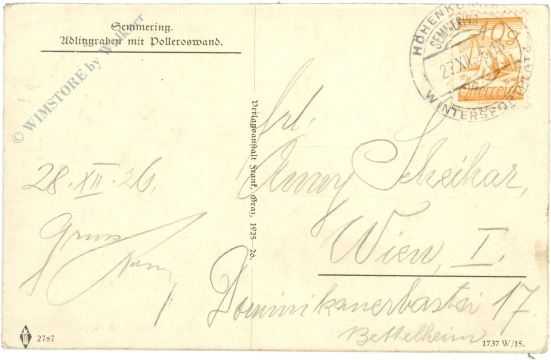 Semmering.
Adlitzgraben mit Polleroswand.
© WIMSTORE by Wallner
HÖHENKURORT
SEMMERING
27.XII
WINTERSPORTPLATZ
10g
Österreich
Verlagsanstalt Graz, 1925-26.
28. XII. 26.
Gruss
Frl.
Anny Scheikar,
Wien, I.
Dominikanerbastei 17.
Bettelheim
2787
1737 W/15.